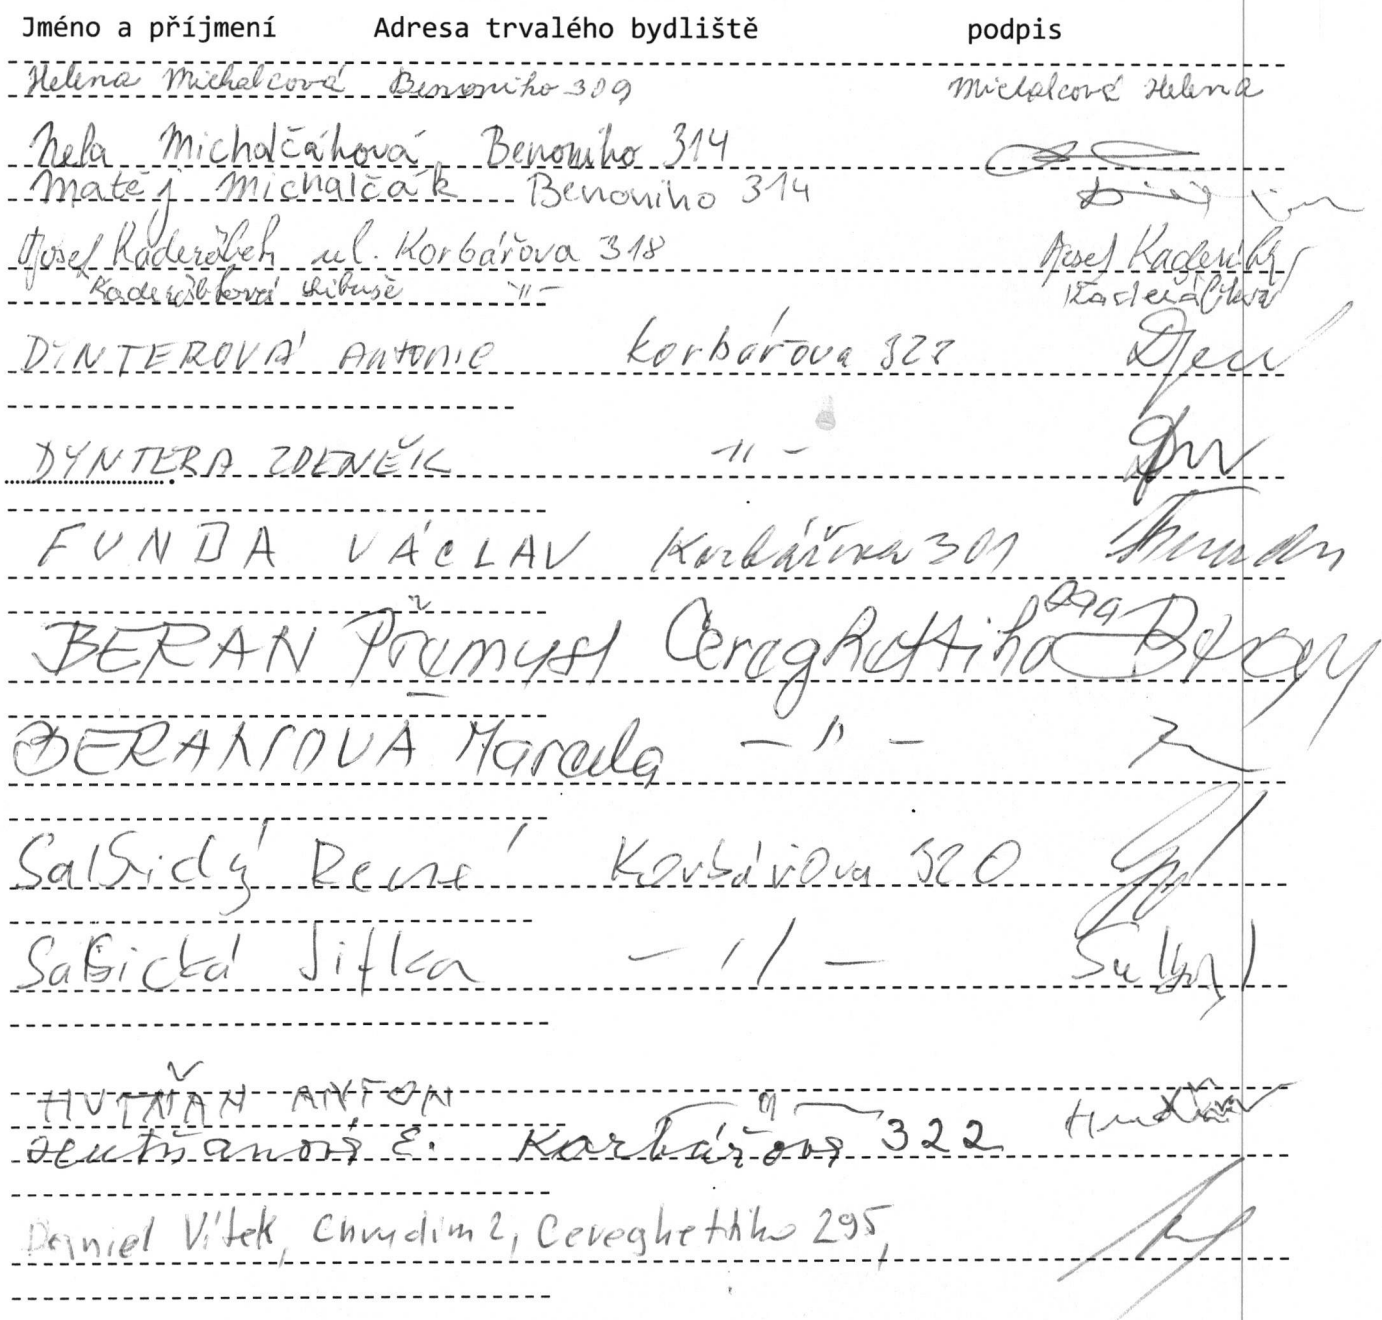 Jméno a příjmení Adresa trvalého bydliště podpis
Helena Michalcová Benoniho 309 Michalcová Helena
Nela Michalčáková Benoniho 314
Matěj Michalčák Benoniho 314
Josef Kadeřábek ul. Korbářova 318 Josef Kadeřábek
Kadeřábková Libuše -"- Kadeřábková
DYNTEROVÁ Antonie Korbářova 322
DYNTERA ZDENĚK -"-
FUNDA VÁCLAV Korbářova 301 Funda
BERAN Přemysl Cereghettiho Beran
BERANOVÁ Marcela -"-
René Korbářova 320
Jitka -"-
HUTŇAN ANTON -"-
Hutňanová E. Korbářova 322
Daniel Vítek, Chrudim 2, Cereghettiho 295,